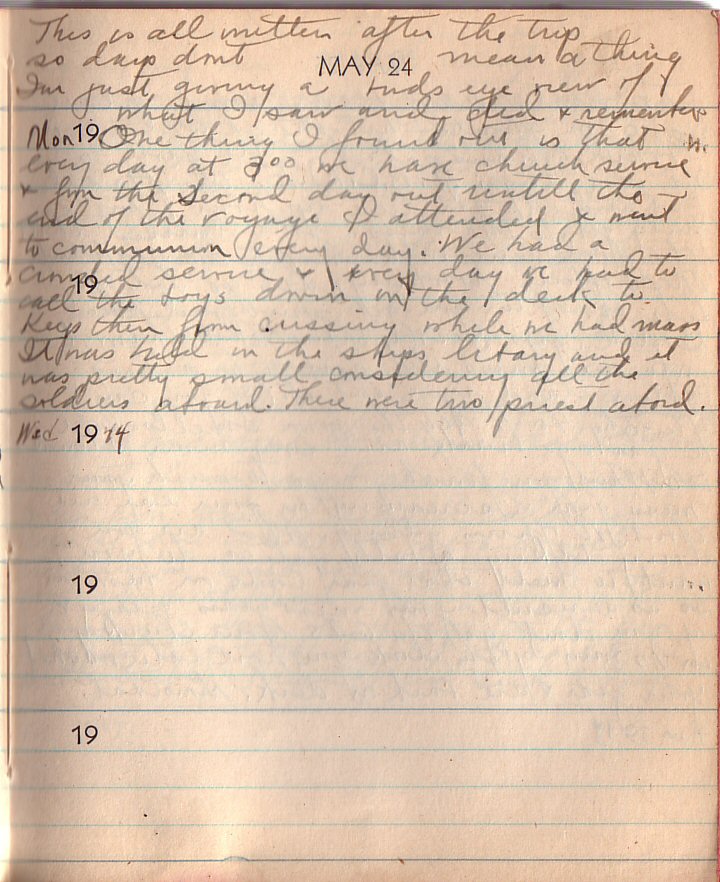 This is all written after the trip
so days dont mean a thing
MAY 24
Im just giving a birds eye view of
what I saw and did & remember
Mon 19 One thing I found out is that
every day at 300 we have church service
& from the second day out untill the
end of the voyage I attended & went
to communion every day. We had a
crowded service & every day we had to
19
call the boys down on the deck to
keep them from cussing while we had mass
It was held in the ships library and it
was pretty small considering all the
soldiers aboard. There were two priest abord.
Wed 1944
19
19